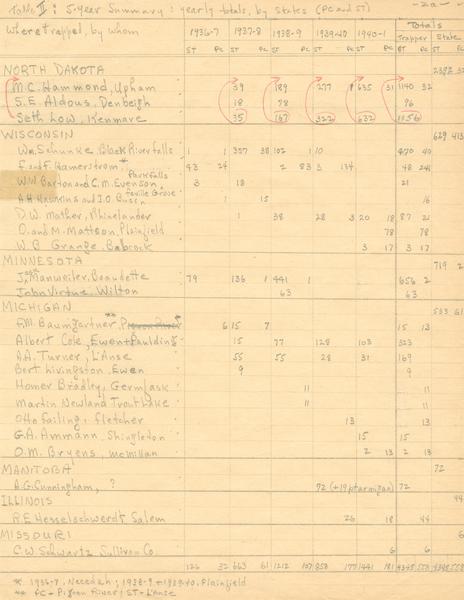 Table II: 5-year Summary: yearly totals, by states (PC and ST) -2a-
Where trapped, by whom 1936-7 1937-8 1938-9 1939-40 1940-1 Totals
ST PC ST PC ST PC ST PC ST PC Trapper ST PC State ST PC
NORTH DAKOTA 2392 32
M.C. Hammond, Upham 39 189 277 635 31 1140 32
S.E. Aldous, Denbigh 18 78 96
Seth Low, Kenmare 35 167 322 632 1156
WISCONSIN 629 413
Wm. Schunke, Black River Falls 1 1 357 38 102 1 10 470 40
F. and F. Hamerstrom* 43 24 2 83 3 134 48 241
W.W. Barton and C.M. Evenson, Park Falls 3 18 21
A.H. Hawkins and I.O. Buss, Faville Grove 1 15 16
D.W. Mather, Rhinelander 1 38 28 3 20 18 87 21
O. and M. Mattson, Plainfield 78 78
W.B. Grange, Babcock 3 17 3 17
MINNESOTA 719 2
J. Manweiler, Baudette 79 136 1 441 1 656 2
John Virtue, Wilton 63 63
MICHIGAN
F.M. Baumgartner** 6 15 7 15 13
Albert Cole, Ewen + Paulding 15 77 128 103 323
A.A. Turner, L'Anse 55 55 28 31 169
Bert Livingston, Ewen 9 9
Homer Bradley, Germfask 11 11
Martin Newland Trout Lake 11 11
Otto Failing, Fletcher 13 13
G.A. Ammann, Shingleton 15 15
O.M. Bryens, McMillan 2 13 2 13
MANITOBA 72
A.G. Cunningham, ? 72 (+19 ptarmigan) 72
ILLINOIS 44
R.E. Hesselschwerdt Salem 26 18 44
MISSOURI 6
C.W. Schwartz Sullivan Co. 6 6
126 32 663 61 1212 107 858 177 1441 181
* 1936-7, Necedah; 1938-9 + 1939-40, Plainfield
** PC - Pigeon River; ST - L'Anse